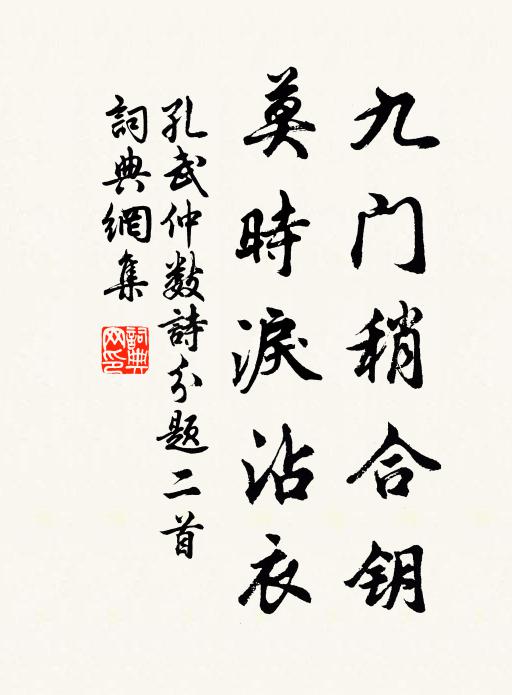 九门稍合钥
莫時淚沾衣
孔武仲数詩分题二首
詞典網集
詞典网印